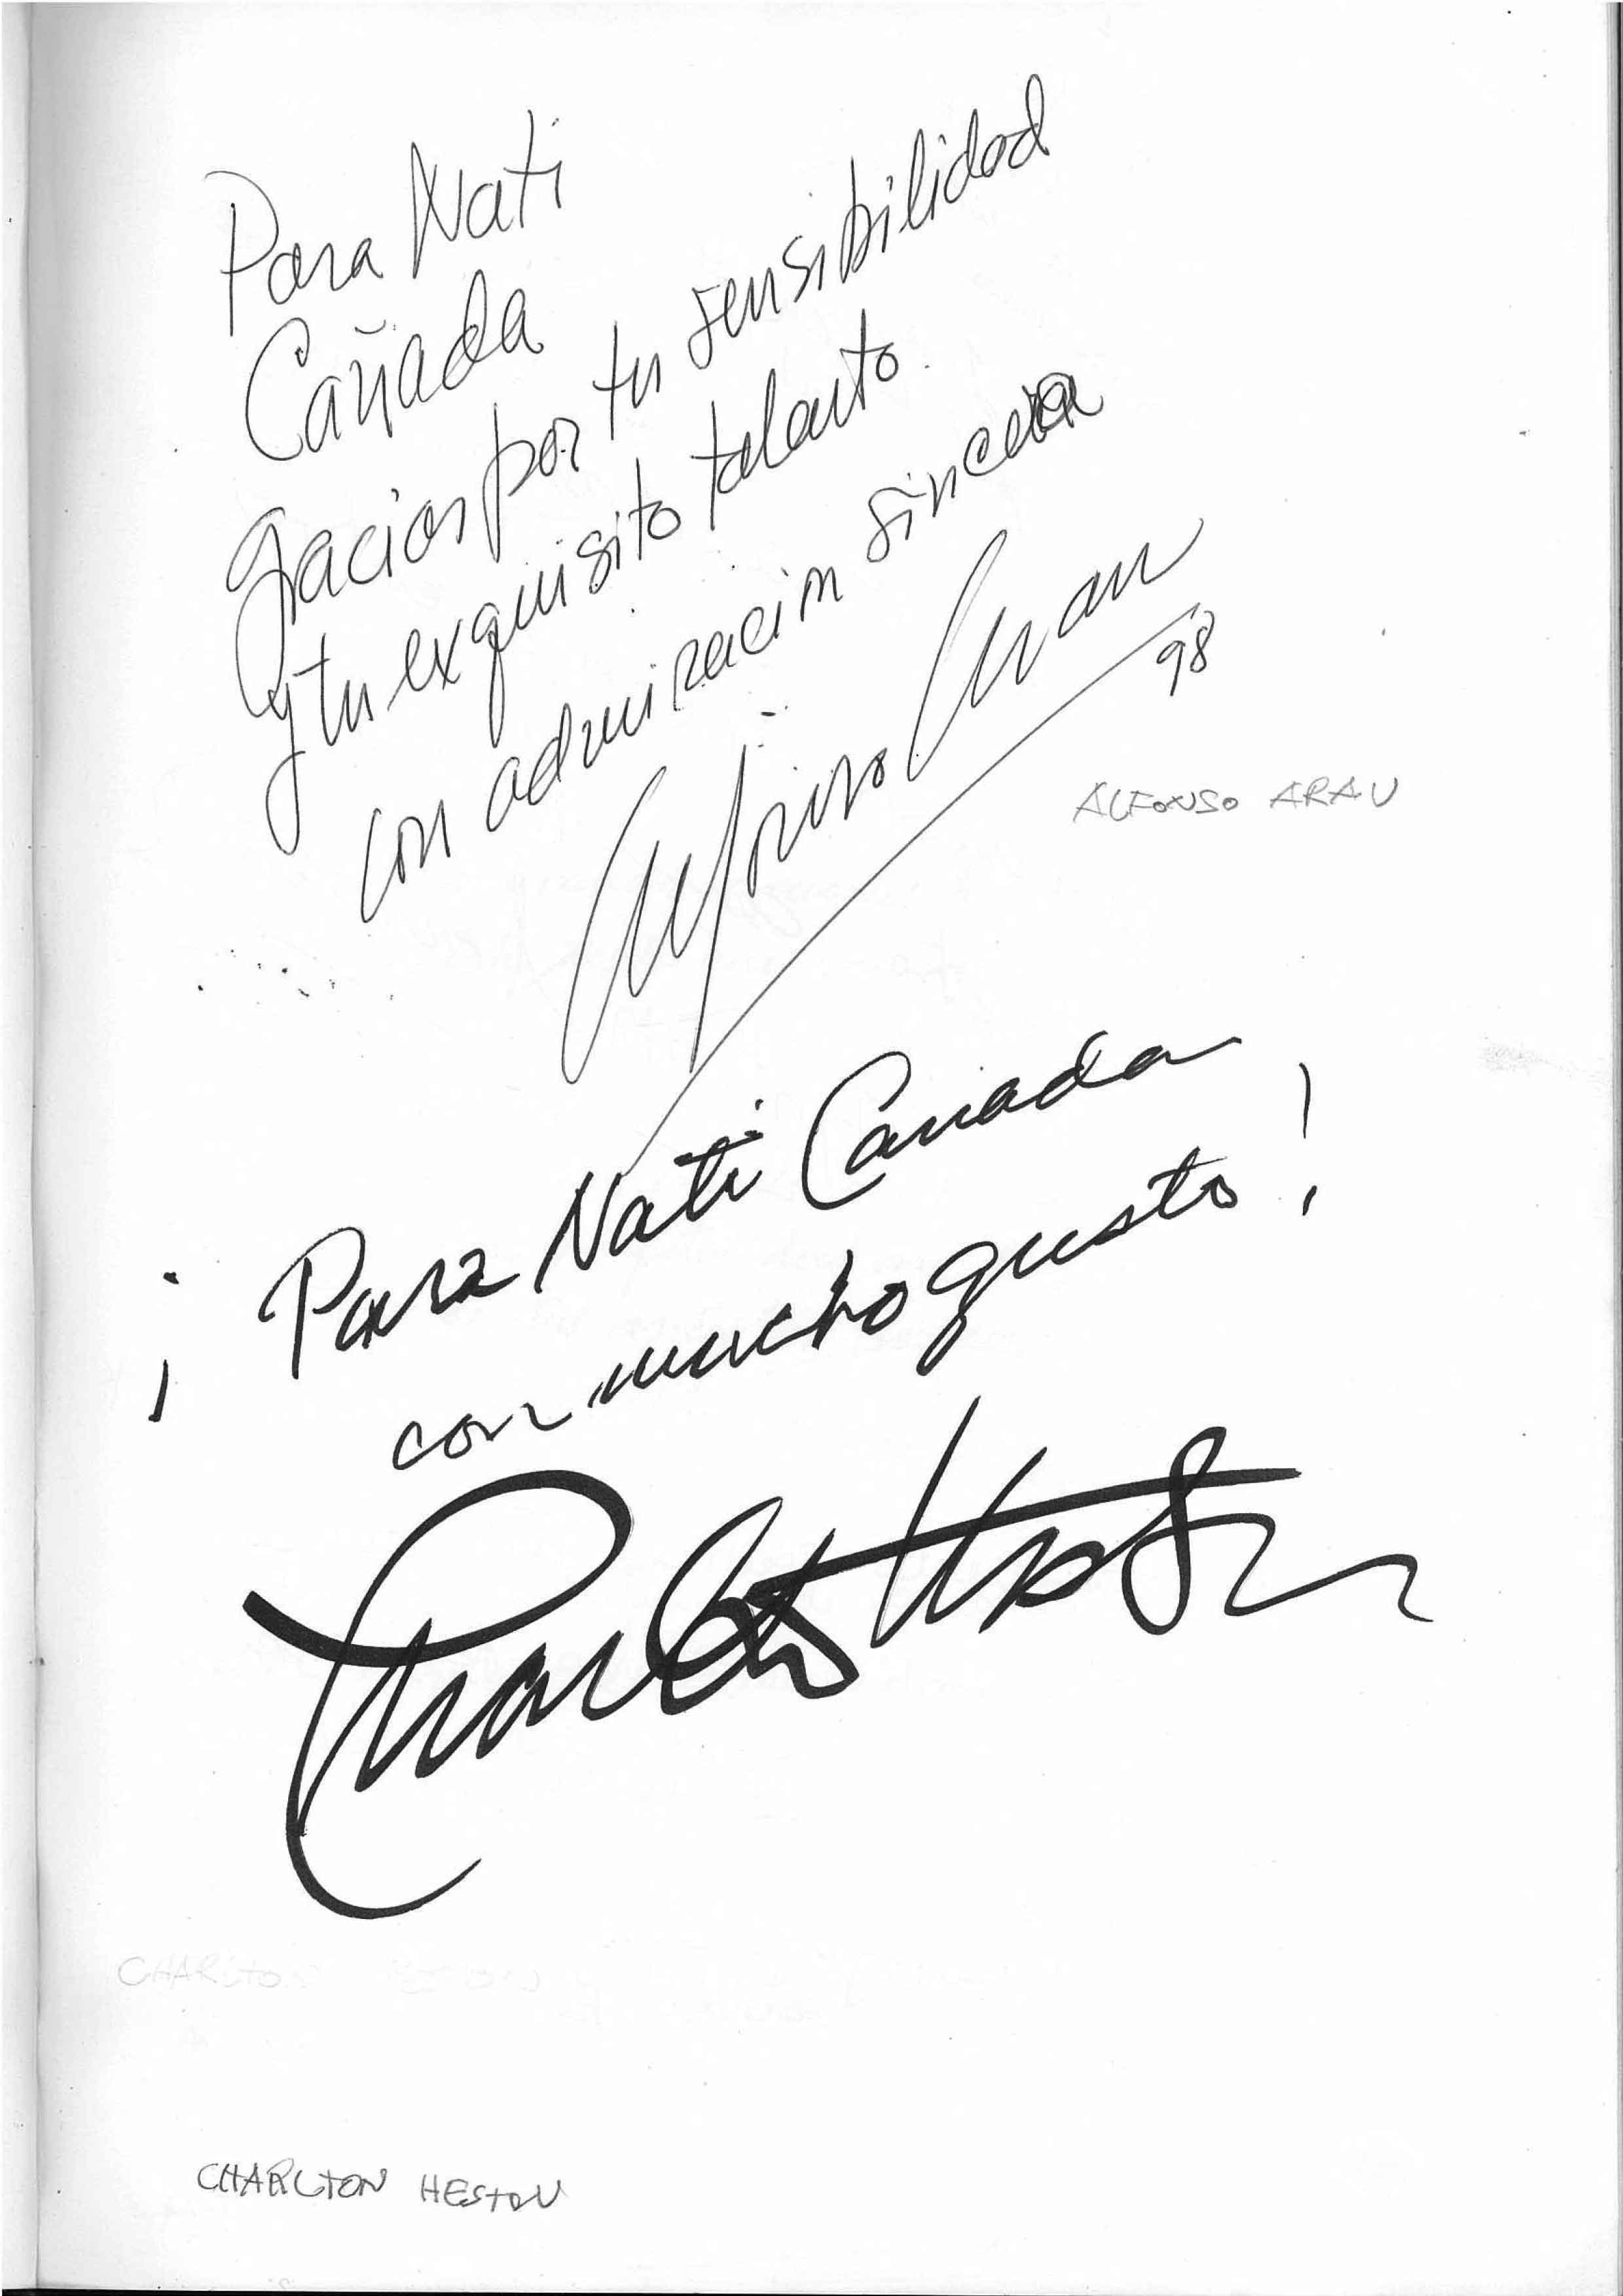 Para Nati
Cañada
gracias por tu sensibilidad
y tu exquisito talento.
con admiración sincera
Alfonso Arau
98
ALFONSO ARAU
¡Para Nati Canada
con mucho gusto!
Charlton Heston
CHARLTON
CHARLTON HESTON